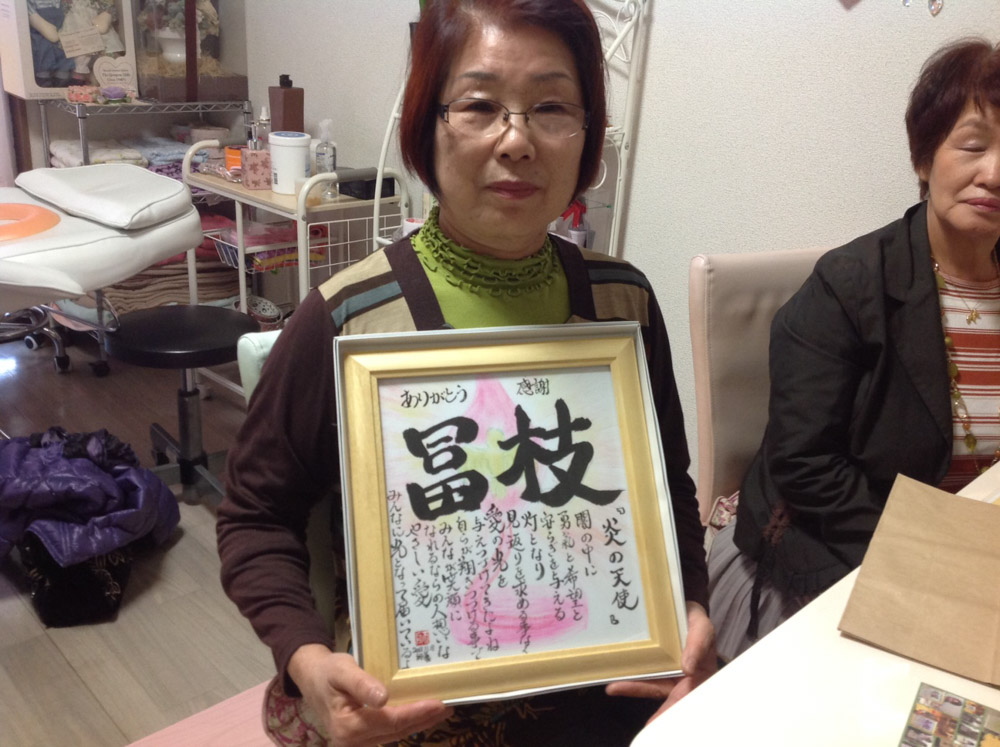 ありがとう 感謝
冨枝
『炎の天使』
闇の中に
勇気と希望と
安らぎを与える
灯となり
見返りを求める事なく
愛の光を
与えつづけてきたよね
自らが輝きつづける事で
みんなが笑顔に
なれるならの人想いな
やさしい愛
みんなに光となって届いているよ